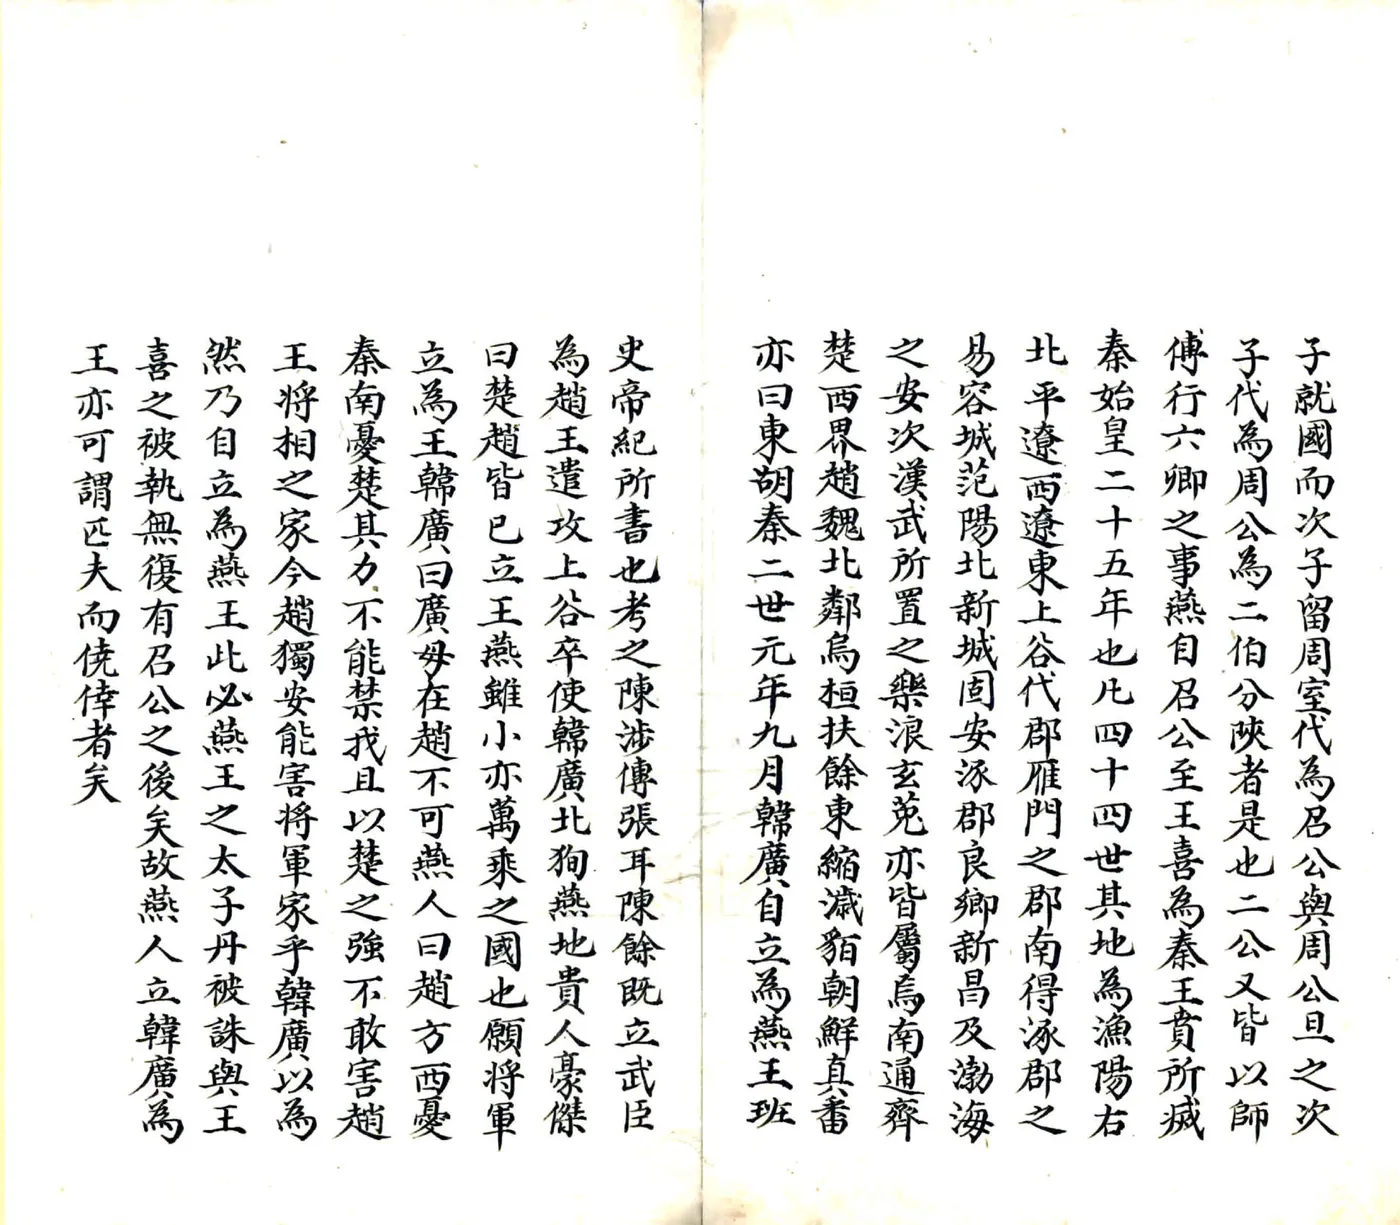 子就國而次子留周室代為召公與周公旦之次
子代為周公為二伯分陝者是也二公又皆以師
傅行六卿之事燕自召公至王喜為秦王賁所滅
秦始皇二十五年也凡四十四世其地為漁陽右
北平遼西遼東上谷代郡雁門之郡南得涿郡之
易容城范陽北新城固安涿郡良鄉新昌及渤海
之安次漢武所置之樂浪玄菟亦皆屬焉南通齊
楚西界趙魏北鄰烏桓扶餘東綰濊貊朝鮮真番
亦曰東胡秦二世元年九月韓廣自立為燕王班
史帝紀所書也考之陳涉傳張耳陳餘既立武臣
為趙王遣攻上谷卒使韓廣北狥燕地貴人豪傑
曰楚趙皆已立王燕雖小亦萬乘之國也願將軍
立為王韓廣曰廣母在趙不可燕人曰趙方西憂
秦南憂楚其力不能禁我且以楚之強不敢害趙
王將相之家今趙獨安能害將軍家乎韓廣以為
然乃自立為燕王此必燕王之太子丹被誅與王
喜之被執無復有召公之後矣故燕人立韓廣為
王亦可謂匹夫而僥倖者矣